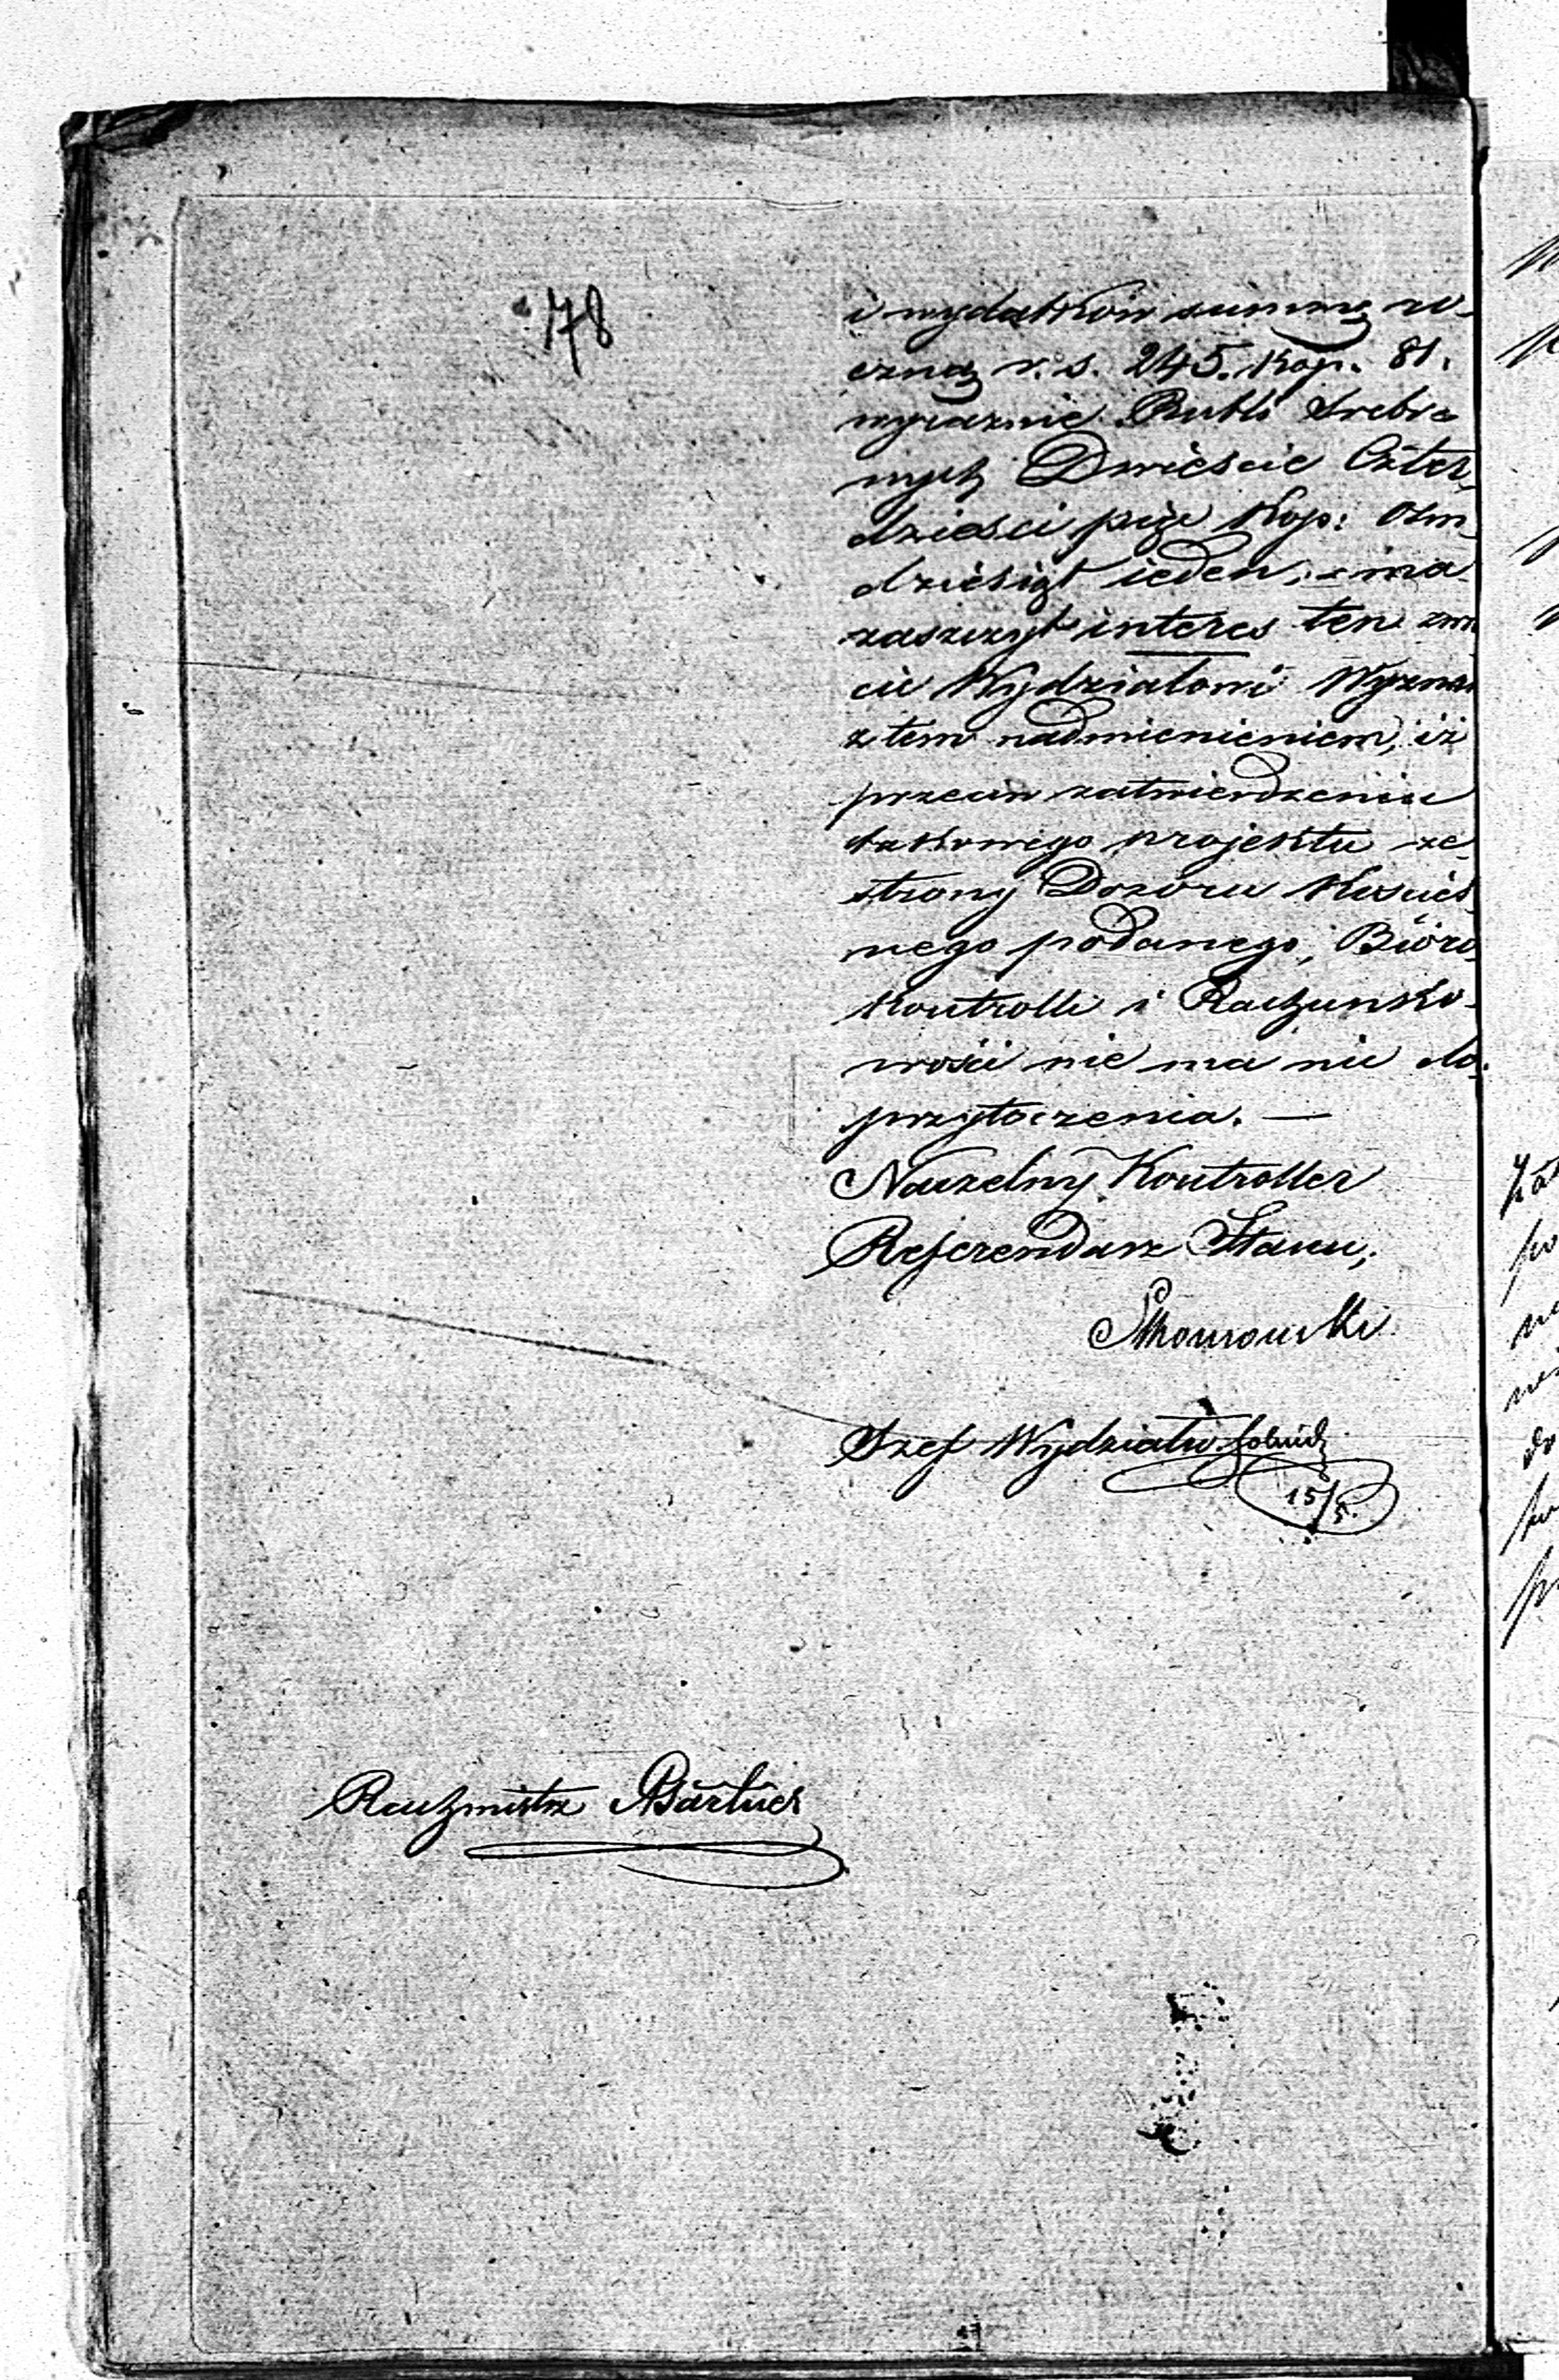 78
i wydatków summę ro-
czną r. s. 245. kop. 81.
wyraznie Rubli Srebr-
nych Dwieście Czter-
dzieści pięć Kop: Osm-
dziesiąt ieden, - ma
zaszczyt interes ten zwró
cić Wydziałowi Wyznań
z tem nadmienieniem, iż
przeciw zatwierdzeniu
takowego projektu ze
strony Dozoru Kościel-
nego podanego, Bióro
Kontrolli i Rachunko-
wości nie ma nic do
przytoczenia. —
Naczelny Kontroller
Referendarz Stanu,
Szef Wydziału
15/5.
Rachmistrz